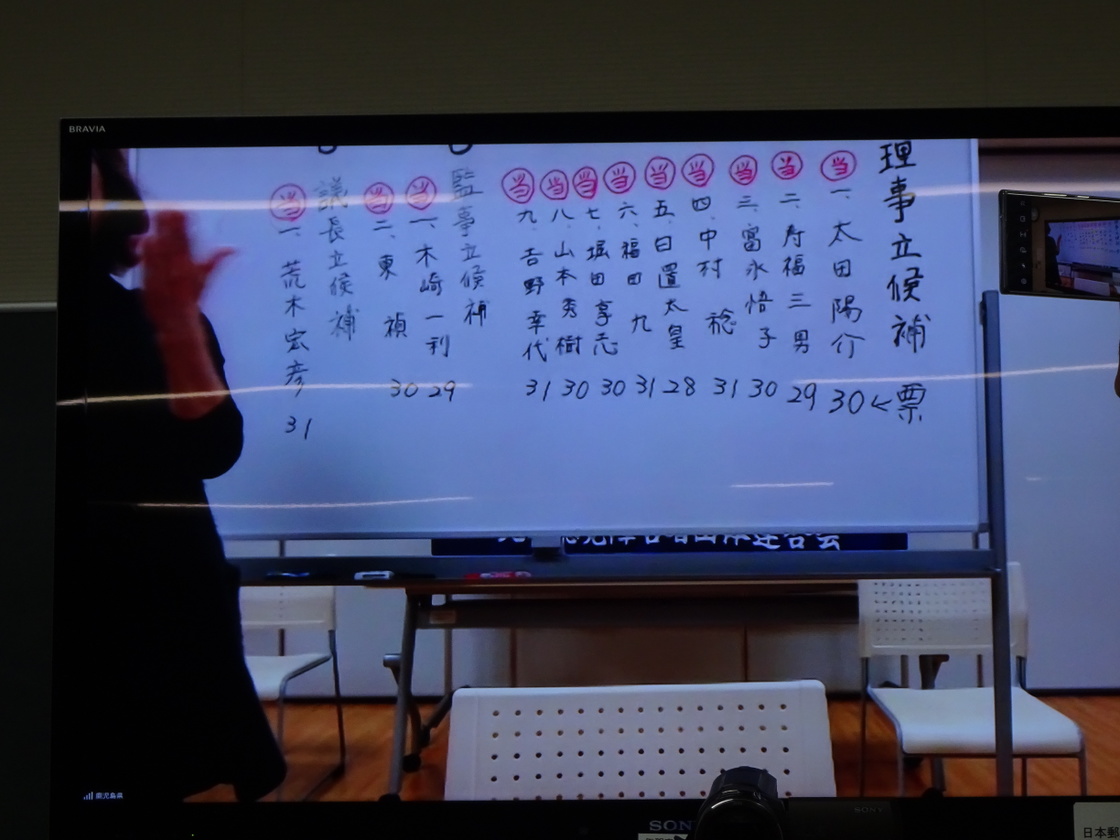 BRAVIA
理事立候補 票
㊟ 一、太田陽介 30←
当 二、寿福三男 29
当 三、富永悟子 30
当 四、中村稔 31
当 五、日置太皇 28
当 六、福田九 31
当 七、堀田享志 30
当 八、山本秀樹 30
当 九、吉野幸代 31
監事立候補
当 一、木崎一利 29
当 二、東禎 30
議長立候補
当 一、荒木宏彦 31
連合会
鹿児島県
SONY
SONY
日本郵